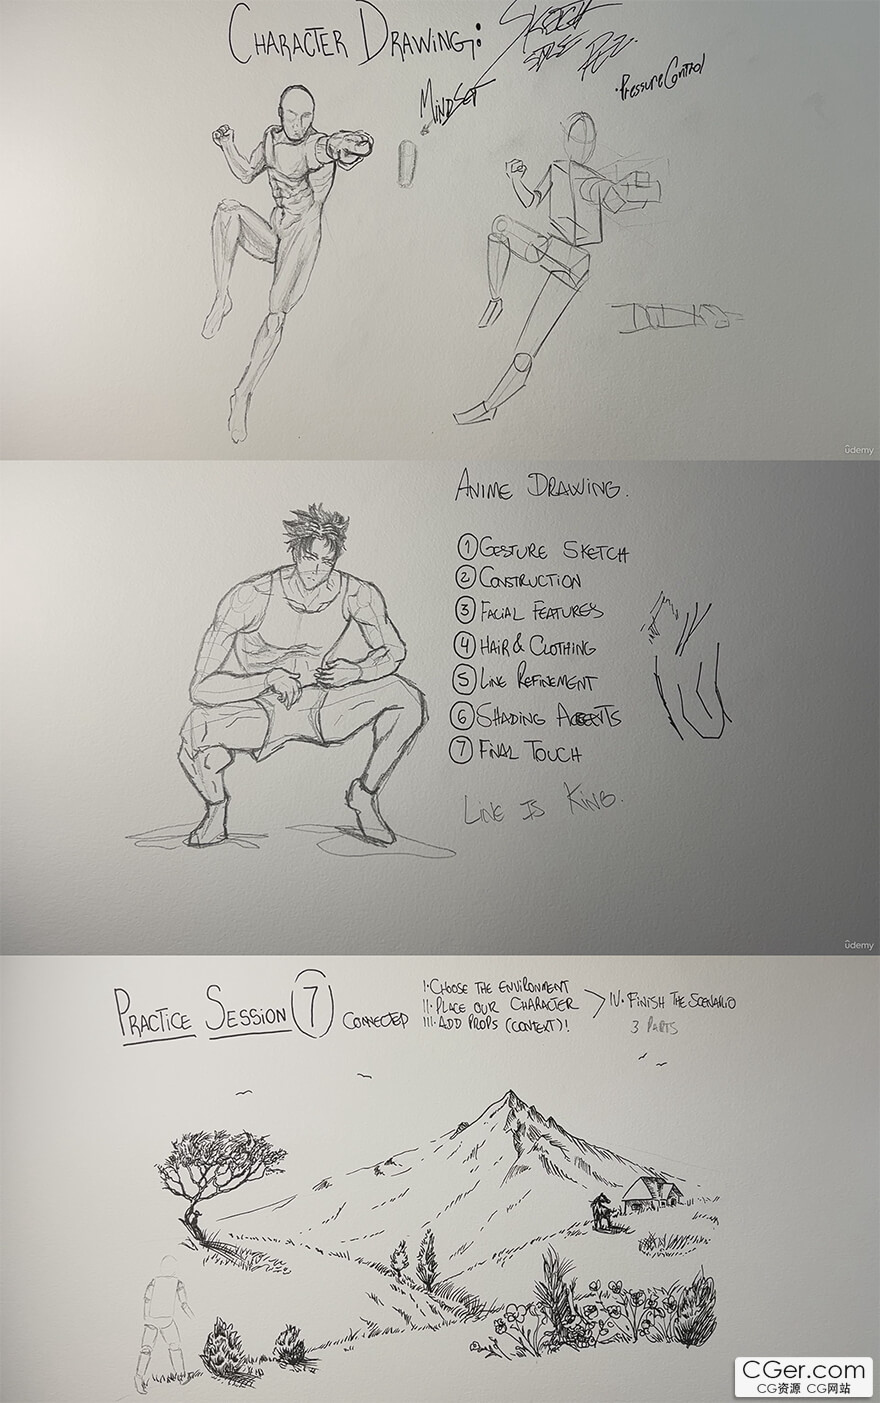 CHARACTER DRAWING:
SKETCH
MINDSET
• Pressure Control
ûdemy
ANIME DRAWING.
① GESTURE SKETCH
② CONSTRUCTION
③ FACIAL FEATURES
④ HAIR & CLOTHING
⑤ LINE REFINEMENT
⑥ SHADING ACCENTS
⑦ FINAL TOUCH
LINE IS KING.
ûdemy
PRACTICE SESSION 7 CONNECTED
I• CHOOSE THE ENVIRONMENT
II• PLACE OUR CHARACTER
III• ADD PROPS (CONTEXT)!
IV• FINISH THE SCENARIO
3 PARTS
CGer.com
CG资源 CG网站